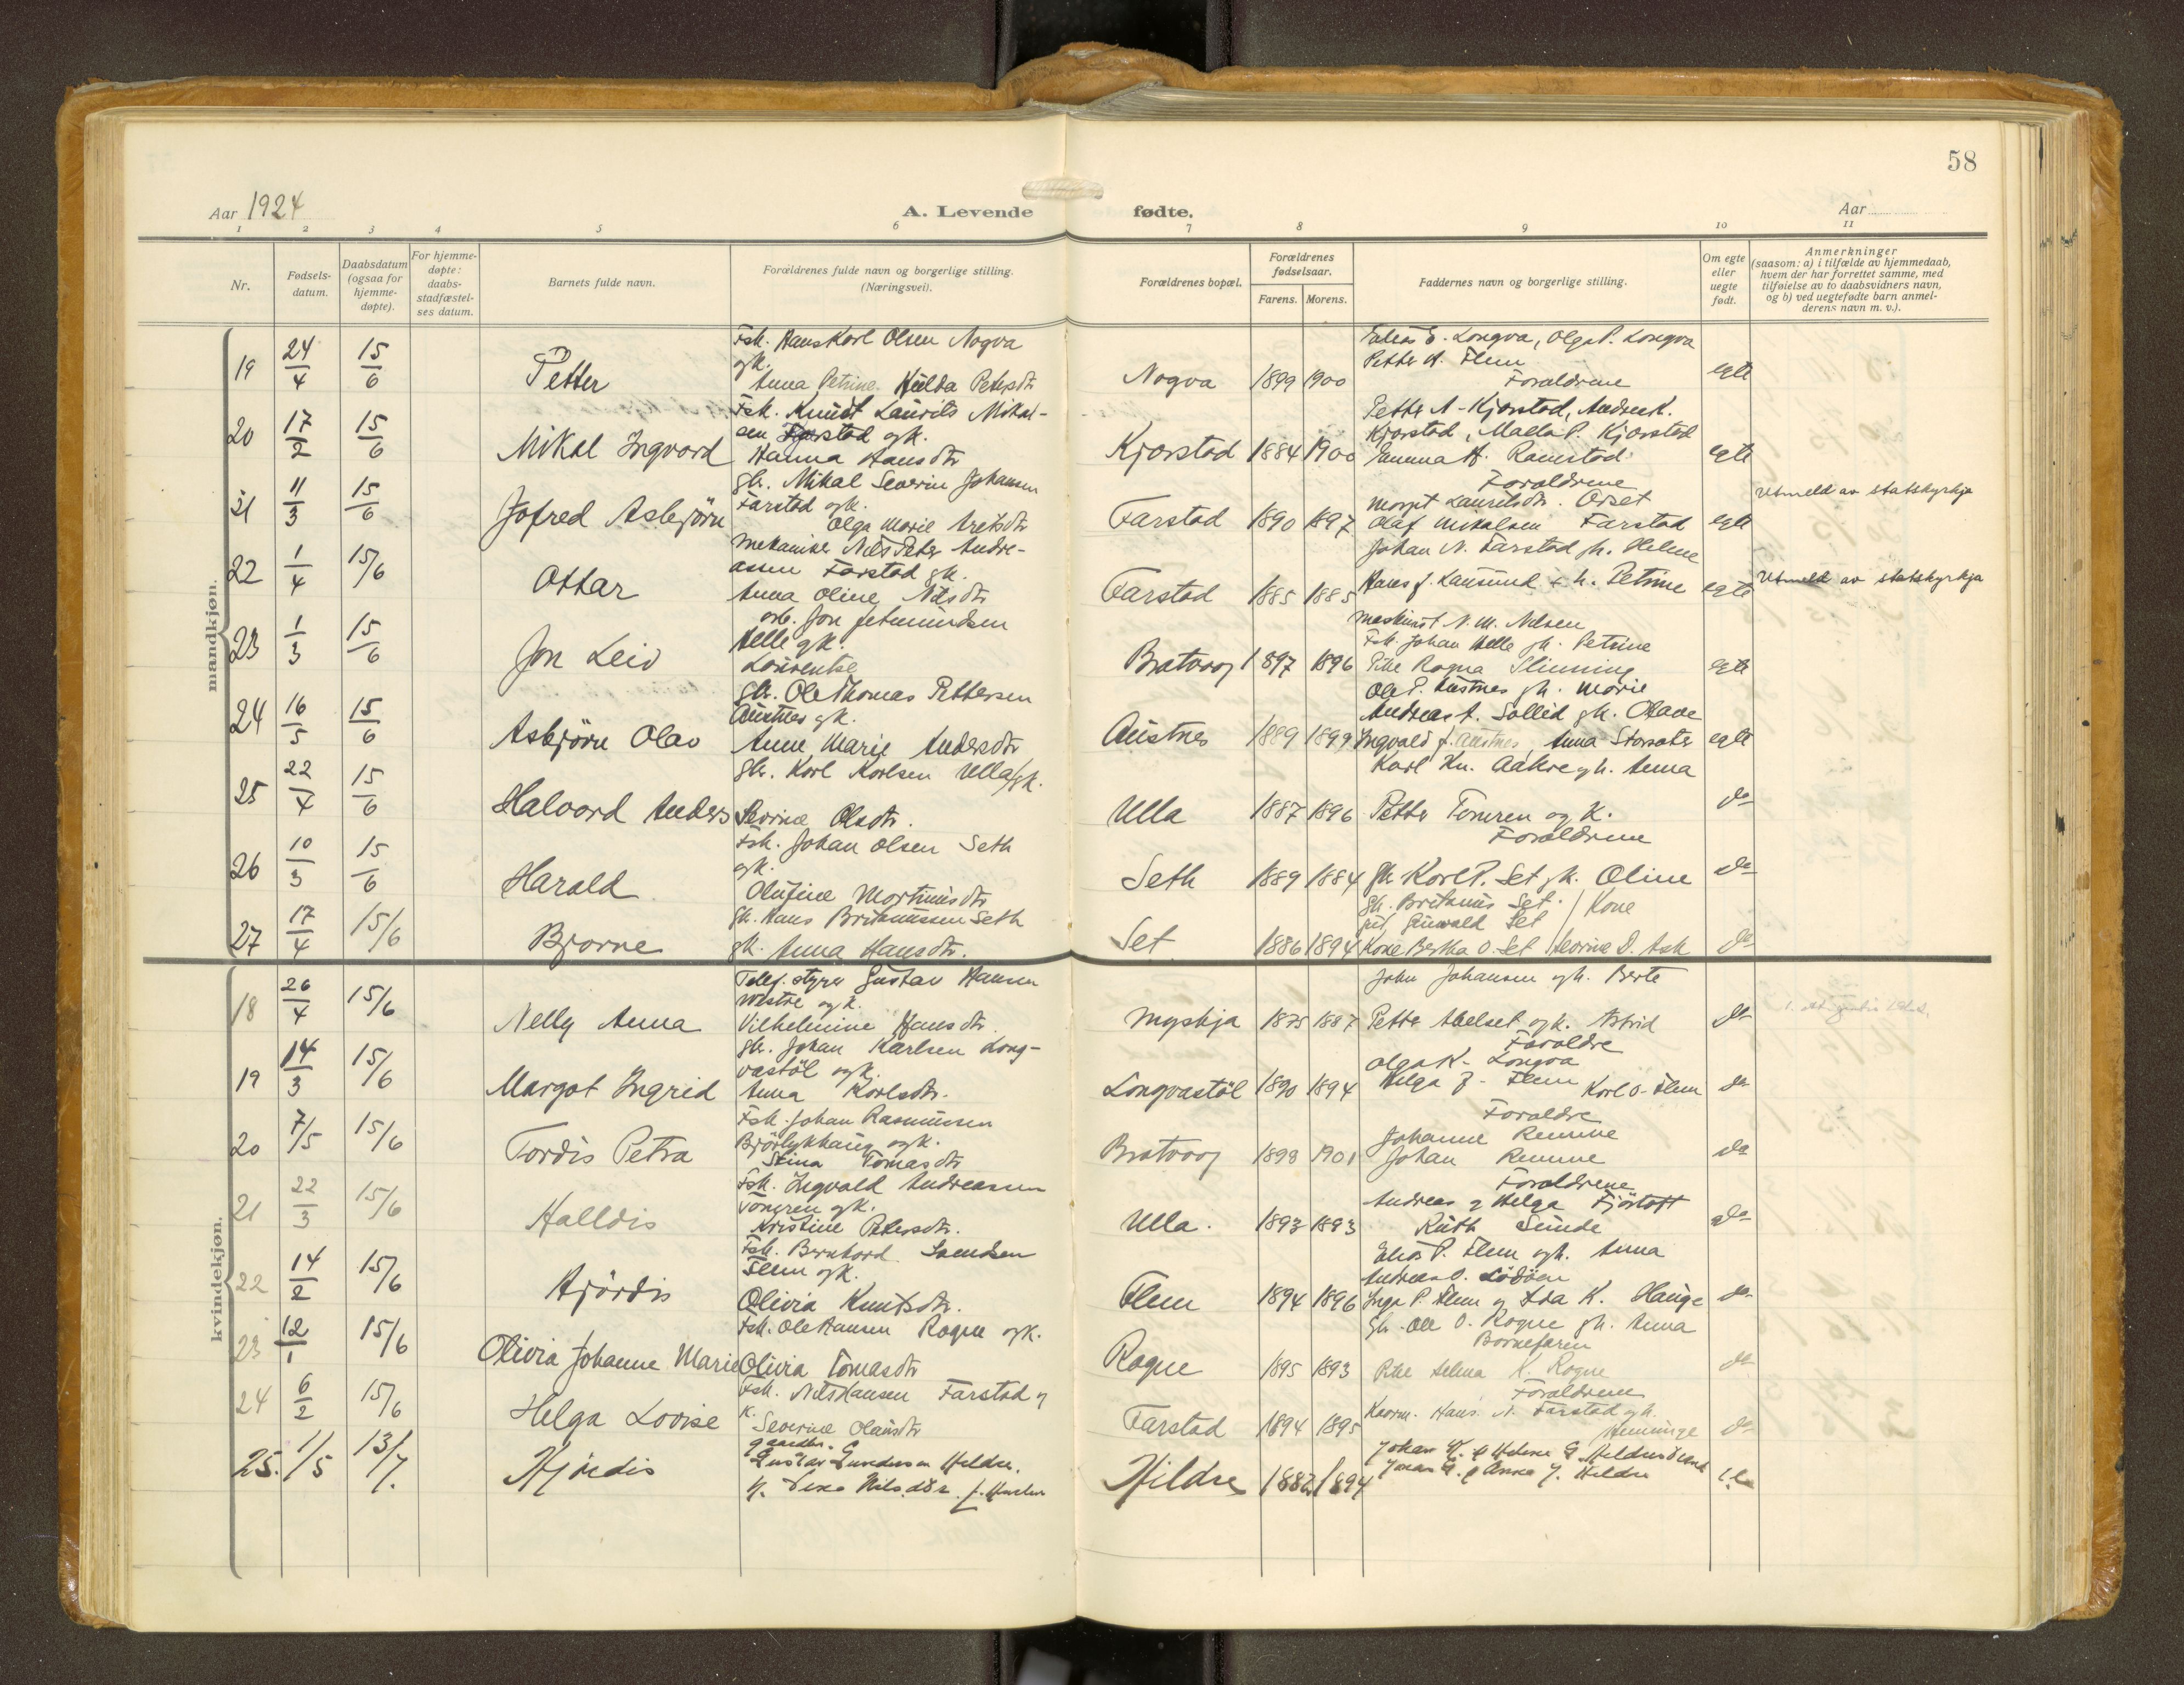 58
Aar 1924
A. Levende fødte.
Aar
1 2 3 4 5 6 7 8 9 10 11
Nr.
Fødsels-
datum.
Daabsdatum
(ogsaa for
hjemme-
døpte).
For hjemme-
døpte:
daabs-
stadfæstel-
ses datum.
Barnets fulde navn.
Forældrenes fulde navn og borgerlige stilling.
(Næringsvei).
Forældrenes bopæl.
Forældrenes
fødselsaar.
Farens. Morens.
Faddernes navn og borgerlige stilling.
Om egte
eller
uegte
født.
Anmerkninger
(saasom: a) i tilfælde av hjemmedaab,
hvem der har forrettet samme, med
tilføielse av to daabsvidners navn,
og b) ved uegtefødte barn anmel-
derens navn m. v.).
mandkjøn.
19 24/4 15/6 Petter
Fsk. Hans Karl Olsen Nogva
og k.
Anna Petrine Hulda Petersdtr
Nogva 1899 1900
Elias E. Longva, Olga P. Longva
Petter A. Flem
Forældrene
egte
20 17/2 15/6 Mikal Ingvard
Fsk. Knudt Laurits Mikal-
sen Farstad og k.
Hanna Hansdtr
Kjørstad 1884 1900
Petter A. Kjørstad, Andreas K.
Kjørstad, Malla P. Kjørstad
Emma H. Ramstad
Forældrene
egte
21 11/3 15/6 Jofred Asbjørn
gbr. Mikal Severin Johansen
Farstad og k.
Olga Marie Aretsdtr
Farstad 1890 1897
Margit Lauritsdtr. Orset
Olaf Mikalsen Farstad
egte
Utmeld av statskyrkja
22 1/4 15/6 Ottar
Mekaniker Nils Peter Andre-
assen Farstad og k.
Anna Oline Nilsdtr
Farstad 1885 1885
Johan N. Farstad og h. Helene
Hans J. Lausund & h. Petrine
egte
Utmeld av statskyrkja
23 1/3 15/6 Jon Leiv
arb. Jon Jetmundsen
Helle og k.
Laurentse
Bratvag 1897 1896
Maskinist N. M. Nilsen
Fsk. Johan Helle og h. Petrine
Pike Ragna Slinning
egte
24 16/5 15/6 Asbjørn Olav
gbr. Ole Thomas Pettersen
Austnes og k.
Anne Marie Andersdtr
Austnes 1889 1899
Ole P. Austnes og h. Marie
Andreas A. Sollid og h. Olave
Ingvald J. Austnes, Anna Storsæter
egte
25 22/4 15/6 Halvard Anders
gbr. Karl Karlsen Ulla og k.
Severine Olsdtr.
Ulla 1887 1896
Karl Kn. Aakre og h. Anna
Petter Tomren og k.
Forældrene
do
26 10/3 15/6 Harald
Fsk. Johan Olsen Seth
og k.
Olufine Mortinusdtr
Seth 1889 1884
gbr Karl P. Set og k. Oline
do
27 17/4 15/6 Bjarne
gbr. Hans Britanussen Seth
og k. Anna Hansdtr.
Set 1886 1894
gbr. Britanus Set / Kone
gut Grunvald Set
Kone Bertha O. Set / Severine D. Ask
do
kvindekjøn.
18 26/4 15/6 Nelly Anna
Telef. styrer Gustav Hansen
Vestre og k.
Vilhelmine Hansdtr.
Myskja 1875 1887
John Johansen og h. Berte
Petter Abelset og k. Astrid
Forældre
do
19 14/3 15/6 Margot Ingrid
gbr. Johan Karlsen Long-
vastøl og k.
Anna Karlsdtr.
Longvastøl 1890 1894
Olga K. Longva
Helga J. Flem Karl O. Flem
Forældre
do
20 7/5 15/6 Tordis Petra
Fsk. Johan Rasmussen
Bjørlykhaug og k.
Stina Tomasdtr
Bratvag 1898 1901
Johanne Remme
Johan Remme
Forældrene
do
21 22/3 15/6 Halldis
Fsk. Ingvald Andreassen
Tomren og k.
Kristine Petersdtr.
Ulla. 1893 1893
Andreas og Helga Fjørtoft
Ruth Sunde
do
22 14/2 15/6 Hjørdis
Fsk. Bernhard Svendsen
Flem og k.
Olivia Knutsdtr.
Flem 1894 1896
Elias P. Flem og h. Anna
Andreas O. Lødøen
Inga P. Flem og Ida K. Hauge
do
23 12/1 15/6 Olivia Johanne Marie
Fsk. Ole Hansen Rogne og k.
Olivia Tomasdtr
Rogne 1895 1893
Gbr. Ole O. Rogne og h. Anna
Barnefaren
Pike Selma K. Rogne
Forældrene
do
24 6/2 15/6 Helga Lovise
Fsk. Nils Hansen Farstad og
k. Severine Olausdtr
Farstad 1894 1895
Kaarm. Hans N. Farstad og h.
Henninge
do
25. 1/5 13/7. Hjørdis
gaardbr.
Gustav Gundersen Hildre.
Nilsdtr.
Hildre 1882 1894
Johan K. og Helene G. Hildrestrand
Jonas G. og Anna J. Hildre